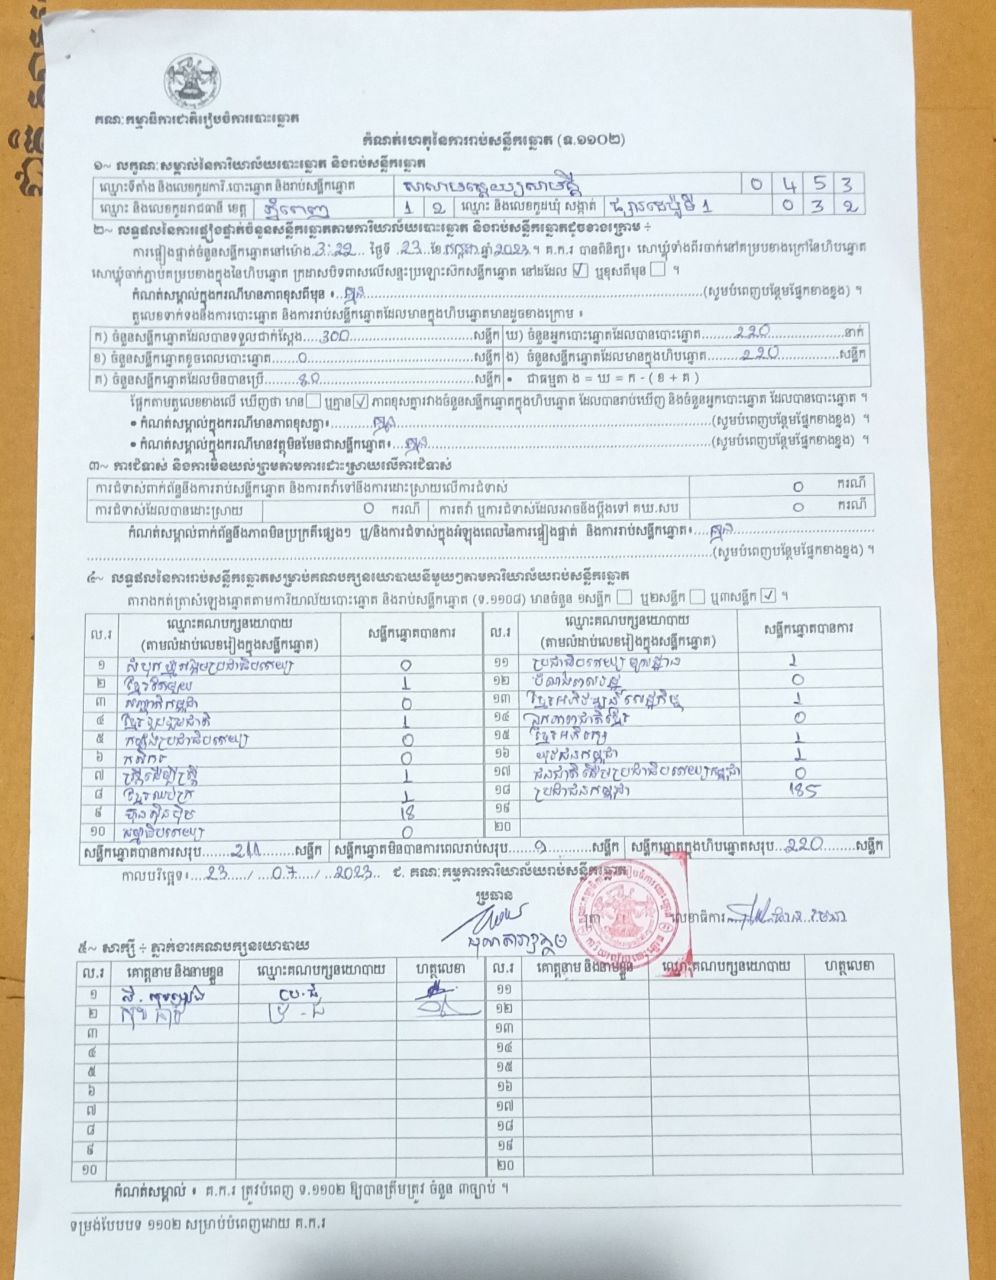 គណៈកម្មាធិការជាតិរៀបចំការបោះឆ្នោត
កំណត់ហេតុនៃការរាប់សន្លឹកឆ្នោត (ទ.១១០២)
១~ លក្ខណៈសម្គាល់នៃការិយាល័យបោះឆ្នោត និងរាប់សន្លឹកឆ្នោត
ឈ្មោះទីតាំង និងលេខកូដការិ.បោះឆ្នោត និងរាប់សន្លឹកឆ្នោត 0 4 5 3
ឈ្មោះ និងលេខកូដរាជធានី ខេត្ត ភ្នំពេញ 1 2 ឈ្មោះ និងលេខកូដឃុំ សង្កាត់ 0 3 2
២~ លទ្ធផលនៃការផ្ទៀងផ្ទាត់ចំនួនសន្លឹកឆ្នោតតាមការិយាល័យបោះឆ្នោត និងរាប់សន្លឹកឆ្នោតដូចខាងក្រោម ÷
ការផ្ទៀងផ្ទាត់ចំនួនសន្លឹកឆ្នោតនៅម៉ោង 3:22 ថ្ងៃទី 23 ខែ កក្កដា ឆ្នាំ 2023 ។ គ.ក.រ បានពិនិត្យ៖ សោឃ្លុំទាំងពីរចាក់នៅគម្របខាងក្រៅនៃហិបឆ្នោត
សោឃ្លុំចាក់ភ្ជាប់គម្របខាងក្នុងនៃហិបឆ្នោត ក្រដាសបិទពាសលើសន្ទះប្រឡោះស៊កសន្លឹកឆ្នោត នៅដដែល ☑ ឬខុសពីមុន ☐ ។
កំណត់សម្គាល់ក្នុងករណីមានភាពខុសពីមុន ៖ គ្មាន (សូមបំពេញបន្ថែមផ្នែកខាងខ្នង) ។
តួលេខទាក់ទងនឹងការបោះឆ្នោត និងការរាប់សន្លឹកឆ្នោតដែលមានក្នុងហិបឆ្នោតមានដូចខាងក្រោម ៖
ក) ចំនួនសន្លឹកឆ្នោតដែលបានទទួលជាក់ស្តែង 300 សន្លឹក ឃ) ចំនួនអ្នកបោះឆ្នោតដែលបានបោះឆ្នោត 220 នាក់
ខ) ចំនួនសន្លឹកឆ្នោតខូចពេលបោះឆ្នោត 0 សន្លឹក ង) ចំនួនសន្លឹកឆ្នោតដែលមានក្នុងហិបឆ្នោត 220 សន្លឹក
គ) ចំនួនសន្លឹកឆ្នោតដែលមិនបានប្រើ 80 សន្លឹក • ជាធម្មតា ង = ឃ = ក - ( ខ + គ )
ផ្អែកតាមតួលេខខាងលើ ឃើញថា មាន ☐ ឬគ្មាន ☑ ភាពខុសគ្នារវាងចំនួនសន្លឹកឆ្នោតក្នុងហិបឆ្នោត ដែលបានរាប់ឃើញ និងចំនួនអ្នកបោះឆ្នោត ដែលបានបោះឆ្នោត ។
• កំណត់សម្គាល់ក្នុងករណីមានភាពខុសគ្នា៖ គ្មាន (សូមបំពេញបន្ថែមផ្នែកខាងខ្នង) ។
• កំណត់សម្គាល់ក្នុងករណីមានវត្ថុមិនមែនជាសន្លឹកឆ្នោត៖ គ្មាន (សូមបំពេញបន្ថែមផ្នែកខាងខ្នង) ។
៣~ ការជំទាស់ និងការមិនយល់ព្រមតាមការដោះស្រាយលើការជំទាស់
ការជំទាស់ពាក់ព័ន្ធនឹងការរាប់សន្លឹកឆ្នោត និងការតវ៉ាទៅនឹងការដោះស្រាយលើការជំទាស់ 0 ករណី
ការជំទាស់ដែលបានដោះស្រាយ 0 ករណី ការតវ៉ា ឬការជំទាស់ដែលអាចនឹងប្តឹងទៅ គឃ.សប 0 ករណី
កំណត់សម្គាល់ពាក់ព័ន្ធនឹងភាពមិនប្រក្រតីផ្សេងៗ ឬ/និងការជំទាស់ក្នុងអំឡុងពេលនៃការផ្ទៀងផ្ទាត់ និងការរាប់សន្លឹកឆ្នោត៖ គ្មាន
(សូមបំពេញបន្ថែមផ្នែកខាងខ្នង) ។
៤~ លទ្ធផលនៃការរាប់សន្លឹកឆ្នោតសម្រាប់គណបក្សនយោបាយនីមួយៗតាមការិយាល័យរាប់សន្លឹកឆ្នោត
តារាងកត់ត្រាសំឡេងឆ្នោតតាមការិយាល័យបោះឆ្នោត និងរាប់សន្លឹកឆ្នោត (ទ.១១០៨) មានចំនួន ១សន្លឹក ☐ ឬ២សន្លឹក ☐ ឬ៣សន្លឹក ☑ ។
ល.រ ឈ្មោះគណបក្សនយោបាយ (តាមលំដាប់លេខរៀងក្នុងសន្លឹកឆ្នោត) សន្លឹកឆ្នោតបានការ ល.រ ឈ្មោះគណបក្សនយោបាយ (តាមលំដាប់លេខរៀងក្នុងសន្លឹកឆ្នោត) សន្លឹកឆ្នោតបានការ
១ សំបុកឃ្មុំសង្គមប្រជាធិបតេយ្យ 0 ១១ ប្រជាធិបតេយ្យមូលដ្ឋាន 1
២ ខ្មែរតែមួយ 1 ១២ 0
៣ សញ្ជាតិកម្ពុជា 0 ១៣ ខ្មែរអភិវឌ្ឍន៍សេដ្ឋកិច្ច 1
៤ ខ្មែររួបរួមជាតិ 1 ១៤ ឯកភាពជាតិខ្មែរ 0
៥ កម្លាំងប្រជាធិបតេយ្យ 0 ១៥ ខ្មែរអភិរក្ស 1
៦ កសិករ 0 ១៦ យុវជនកម្ពុជា 1
៧ ស្ត្រីដើម្បីស្ត្រី 1 ១៧ ជនជាតិដើមប្រជាធិបតេយ្យកម្ពុជា 0
៨ ខ្មែរឈប់ក្រ 1 ១៨ ប្រជាជនកម្ពុជា 185
៩ ហ្វ៊ុនស៊ិនប៉ិច 18 ១៩
១០ ធម្មាធិបតេយ្យ 0 ២០
សន្លឹកឆ្នោតបានការសរុប 211 សន្លឹក សន្លឹកឆ្នោតមិនបានការពេលរាប់សរុប 9 សន្លឹក សន្លឹកឆ្នោតក្នុងហិបឆ្នោតសរុប 220 សន្លឹក
កាលបរិច្ឆេទ៖ 23 / 07 / 2023 ជ. គណៈកម្មការការិយាល័យរាប់សន្លឹកឆ្នោត
ប្រធាន
លេខាធិការ
៥~ សាក្សី ÷ ភ្នាក់ងារគណបក្សនយោបាយ
ល.រ គោត្តនាម និងនាមខ្លួន ឈ្មោះគណបក្សនយោបាយ ហត្ថលេខា ល.រ គោត្តនាម និងនាមខ្លួន ឈ្មោះគណបក្សនយោបាយ ហត្ថលេខា
១ ១១
២ ១២
៣ ១៣
៤ ១៤
៥ ១៥
៦ ១៦
៧ ១៧
៨ ១៨
៩ ១៩
១០ ២០
កំណត់សម្គាល់ ៖ គ.ក.រ ត្រូវបំពេញ ទ.១១០២ ឱ្យបានត្រឹមត្រូវ ចំនួន ៣ច្បាប់ ។
ទម្រង់បែបបទ ១១០២ សម្រាប់បំពេញដោយ គ.ក.រ